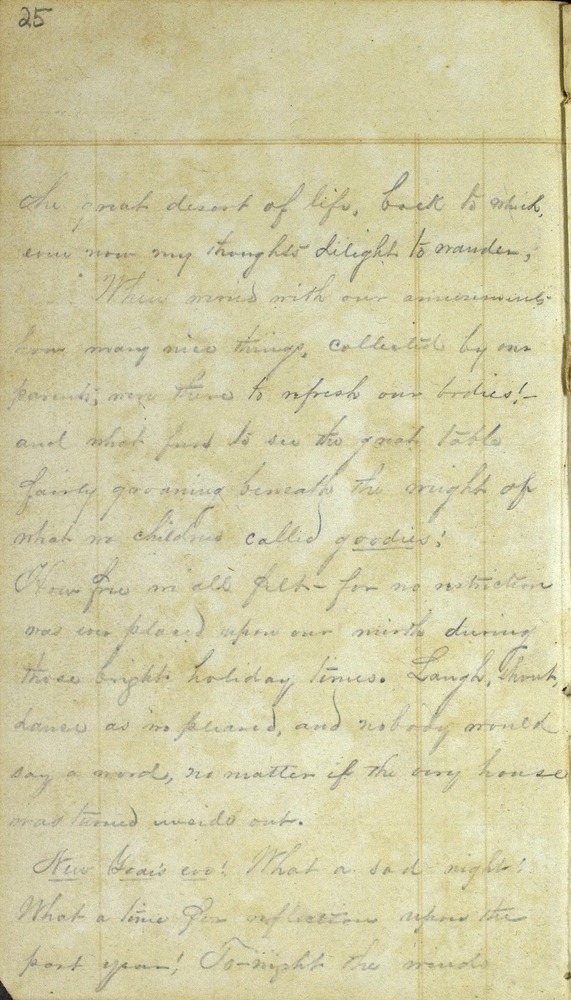 25
the great desert of life, back to which,
even now my thoughts delight to wander,
When wearied with our amusements
how many nice things, collected by our
parents, were there to refresh our bodies!-
and what fun to see the great table
fairly groaning beneath the weight of
what we children called goodies!
How free we all felt- for no restriction
was ever placed upon our mirth during
those bright holiday times. Laugh, shout,
dance as we pleased, and nobody would
say a word, no matter if the very house
was turned inside out.
New Year's eve! What a sad night!
What a time for reflection upon the
past year! To-night the winds